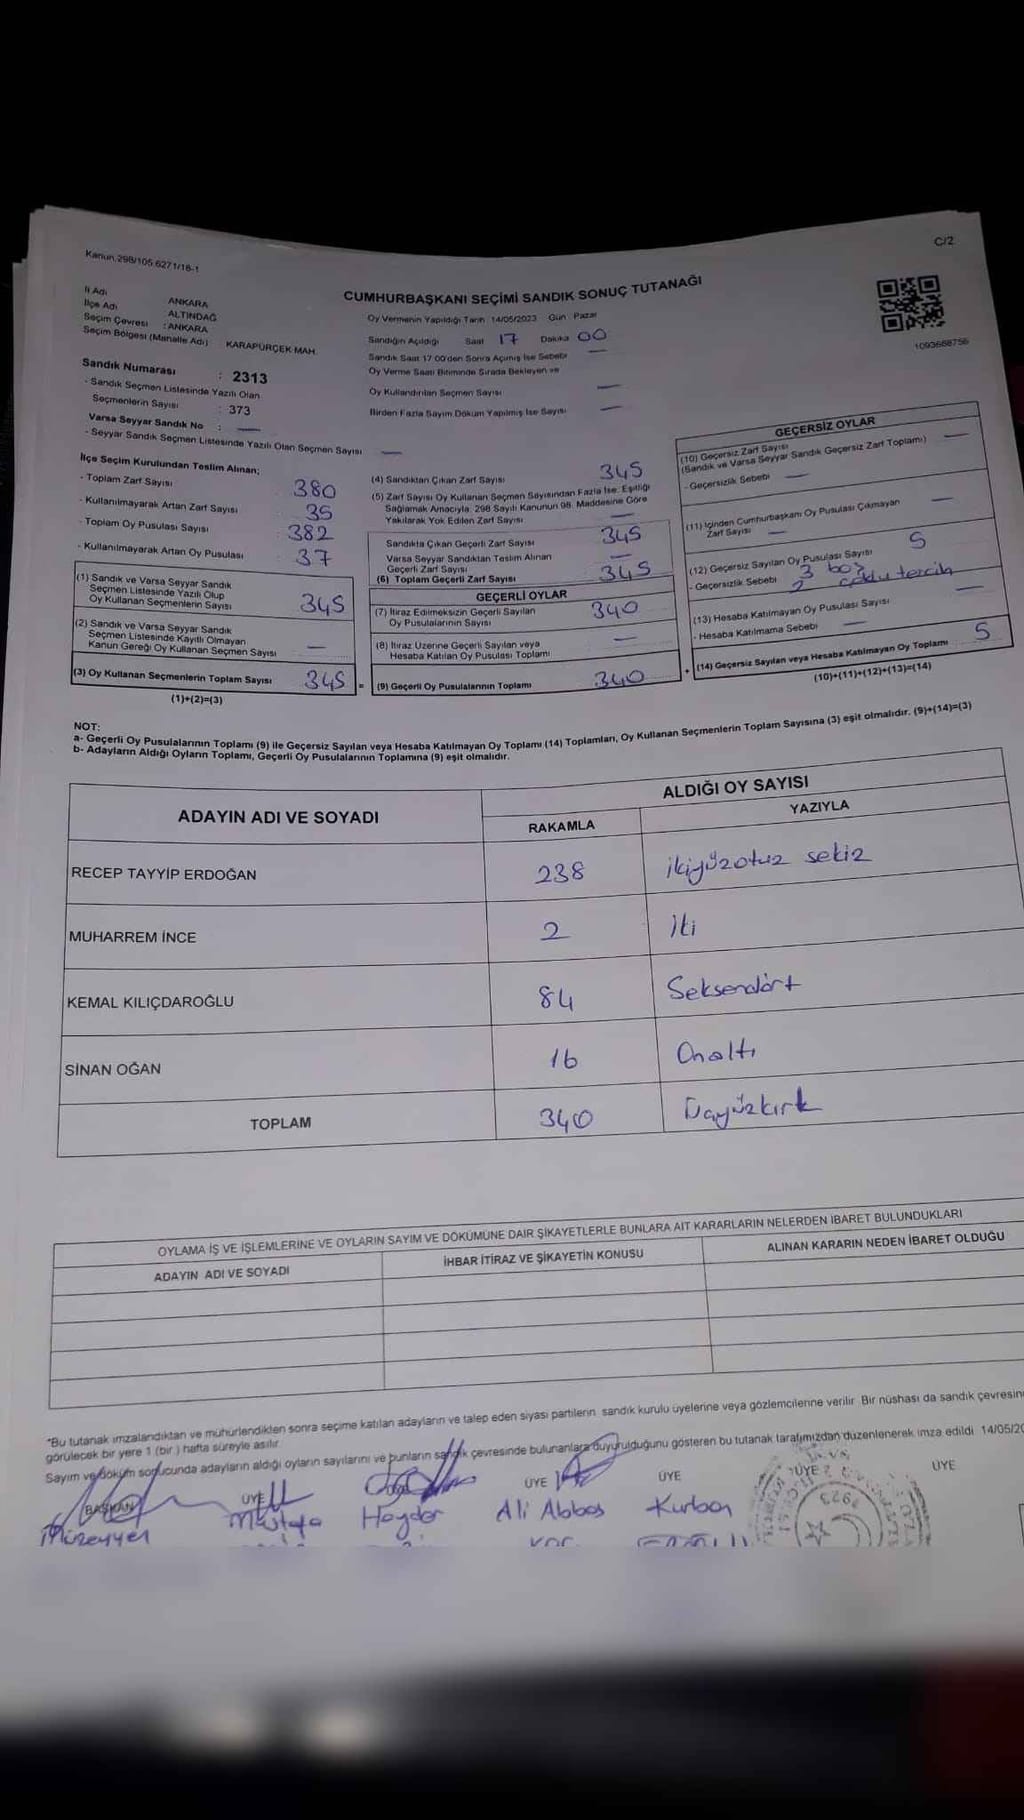 Kanun.298/105.6271/16-1
C/2
CUMHURBAŞKANI SEÇİMİ SANDIK SONUÇ TUTANAĞI
İl Adı ANKARA
İlçe Adı ALTINDAĞ
Seçim Çevresi : ANKARA
Seçim Bölgesi (Mahalle Adı) KARAPÜRÇEK MAH.
Sandık Numarası : 2313
- Sandık Seçmen Listesinde Yazılı Olan
Seçmenlerin Sayısı : 373
Varsa Seyyar Sandık No : —
- Seyyar Sandık Seçmen Listesinde Yazılı Olan Seçmen Sayısı —
Oy Vermenin Yapıldığı Tarih 14/05/2023 Gün Pazar
Sandığın Açıldığı Saat 17 Dakika 00
Sandık Saat 17 00'den Sonra Açılmış İse Sebebi —
Oy Verme Saati Bitiminde Sırada Bekleyen ve
Oy Kullandırılan Seçmen Sayısı —
Birden Fazla Sayım Döküm Yapılmış İse Sayısı —
1093688756
İlçe Seçim Kurulundan Teslim Alınan;
- Toplam Zarf Sayısı 380
- Kullanılmayarak Artan Zarf Sayısı 35
- Toplam Oy Pusulası Sayısı 382
- Kullanılmayarak Artan Oy Pusulası 37
(1) Sandık ve Varsa Seyyar Sandık
Seçmen Listesinde Yazılı Olup
Oy Kullanan Seçmenlerin Sayısı 345
(2) Sandık ve Varsa Seyyar Sandık
Seçmen Listesinde Kayıtlı Olmayan
Kanun Gereği Oy Kullanan Seçmen Sayısı —
(3) Oy Kullanan Seçmenlerin Toplam Sayısı 345 =
(1)+(2)=(3)
(4) Sandıktan Çıkan Zarf Sayısı 345
(5) Zarf Sayısı Oy Kullanan Seçmen Sayısından Fazla İse; Eşitliği
Sağlamak Amacıyla; 298 Sayılı Kanunun 98. Maddesine Göre
Yakılarak Yok Edilen Zarf Sayısı —
Sandıkta Çıkan Geçerli Zarf Sayısı 345
Varsa Seyyar Sandıktan Teslim Alınan
Geçerli Zarf Sayısı —
(6) Toplam Geçerli Zarf Sayısı 345
GEÇERLİ OYLAR
(7) İtiraz Edilmeksizin Geçerli Sayılan
Oy Pusulalarının Sayısı 340
(8) İtiraz Üzerine Geçerli Sayılan veya
Hesaba Katılan Oy Pusulası Toplamı —
(9) Geçerli Oy Pusulalarının Toplamı 340 +
GEÇERSİZ OYLAR
(10) Geçersiz Zarf Sayısı
(Sandık ve Varsa Seyyar Sandık Geçersiz Zarf Toplamı) —
- Geçersizlik Sebebi —
(11) İçinden Cumhurbaşkanı Oy Pusulası Çıkmayan
Zarf Sayısı — —
(12) Geçersiz Sayılan Oy Pusulası Sayısı 5
- Geçersizlik Sebebi 3 boş
2 çoklu tercih
(13) Hesaba Katılmayan Oy Pusulası Sayısı —
- Hesaba Katılmama Sebebi —
(14) Geçersiz Sayılan veya Hesaba Katılmayan Oy Toplamı 5
(10)+(11)+(12)+(13)=(14)
NOT:
a- Geçerli Oy Pusulalarının Toplamı (9) ile Geçersiz Sayılan veya Hesaba Katılmayan Oy Toplamı (14) Toplamları, Oy Kullanan Seçmenlerin Toplam Sayısına (3) eşit olmalıdır. (9)+(14)=(3)
b- Adayların Aldığı Oyların Toplamı, Geçerli Oy Pusulalarının Toplamına (9) eşit olmalıdır.
ADAYIN ADI VE SOYADI
ALDIĞI OY SAYISI
RAKAMLA YAZIYLA
RECEP TAYYİP ERDOĞAN 238 ikiyüzotuz sekiz
MUHARREM İNCE 2 İki
KEMAL KILIÇDAROĞLU 84 Seksendört
SİNAN OĞAN 16 Onaltı
TOPLAM 340 Üçyüzkırk
OYLAMA İŞ VE İŞLEMLERİNE VE OYLARIN SAYIM VE DÖKÜMÜNE DAİR ŞİKAYETLERLE BUNLARA AİT KARARLARIN NELERDEN İBARET BULUNDUKLARI
ADAYIN ADI VE SOYADI İHBAR İTİRAZ VE ŞİKAYETİN KONUSU ALINAN KARARIN NEDEN İBARET OLDUĞU
*Bu tutanak imzalandıktan ve mühürlendikten sonra seçime katılan adayların ve talep eden siyasi partilerin sandık kurulu üyelerine veya gözlemcilerine verilir. Bir nüshası da sandık çevresin
görülecek bir yere 1 (bir ) hafta süreyle asılır.
Sayım ve döküm sonucunda adayların aldığı oyların sayılarını ve bunların sandık çevresinde bulunanlara duyurulduğunu gösteren bu tutanak tarafımızdan düzenlenerek imza edildi. 14/05/20
BAŞKAN ÜYE ÜYE ÜYE ÜYE ÜYE
Müzeyyen Mustafa Haydar Ali Abbas Kurban
1923